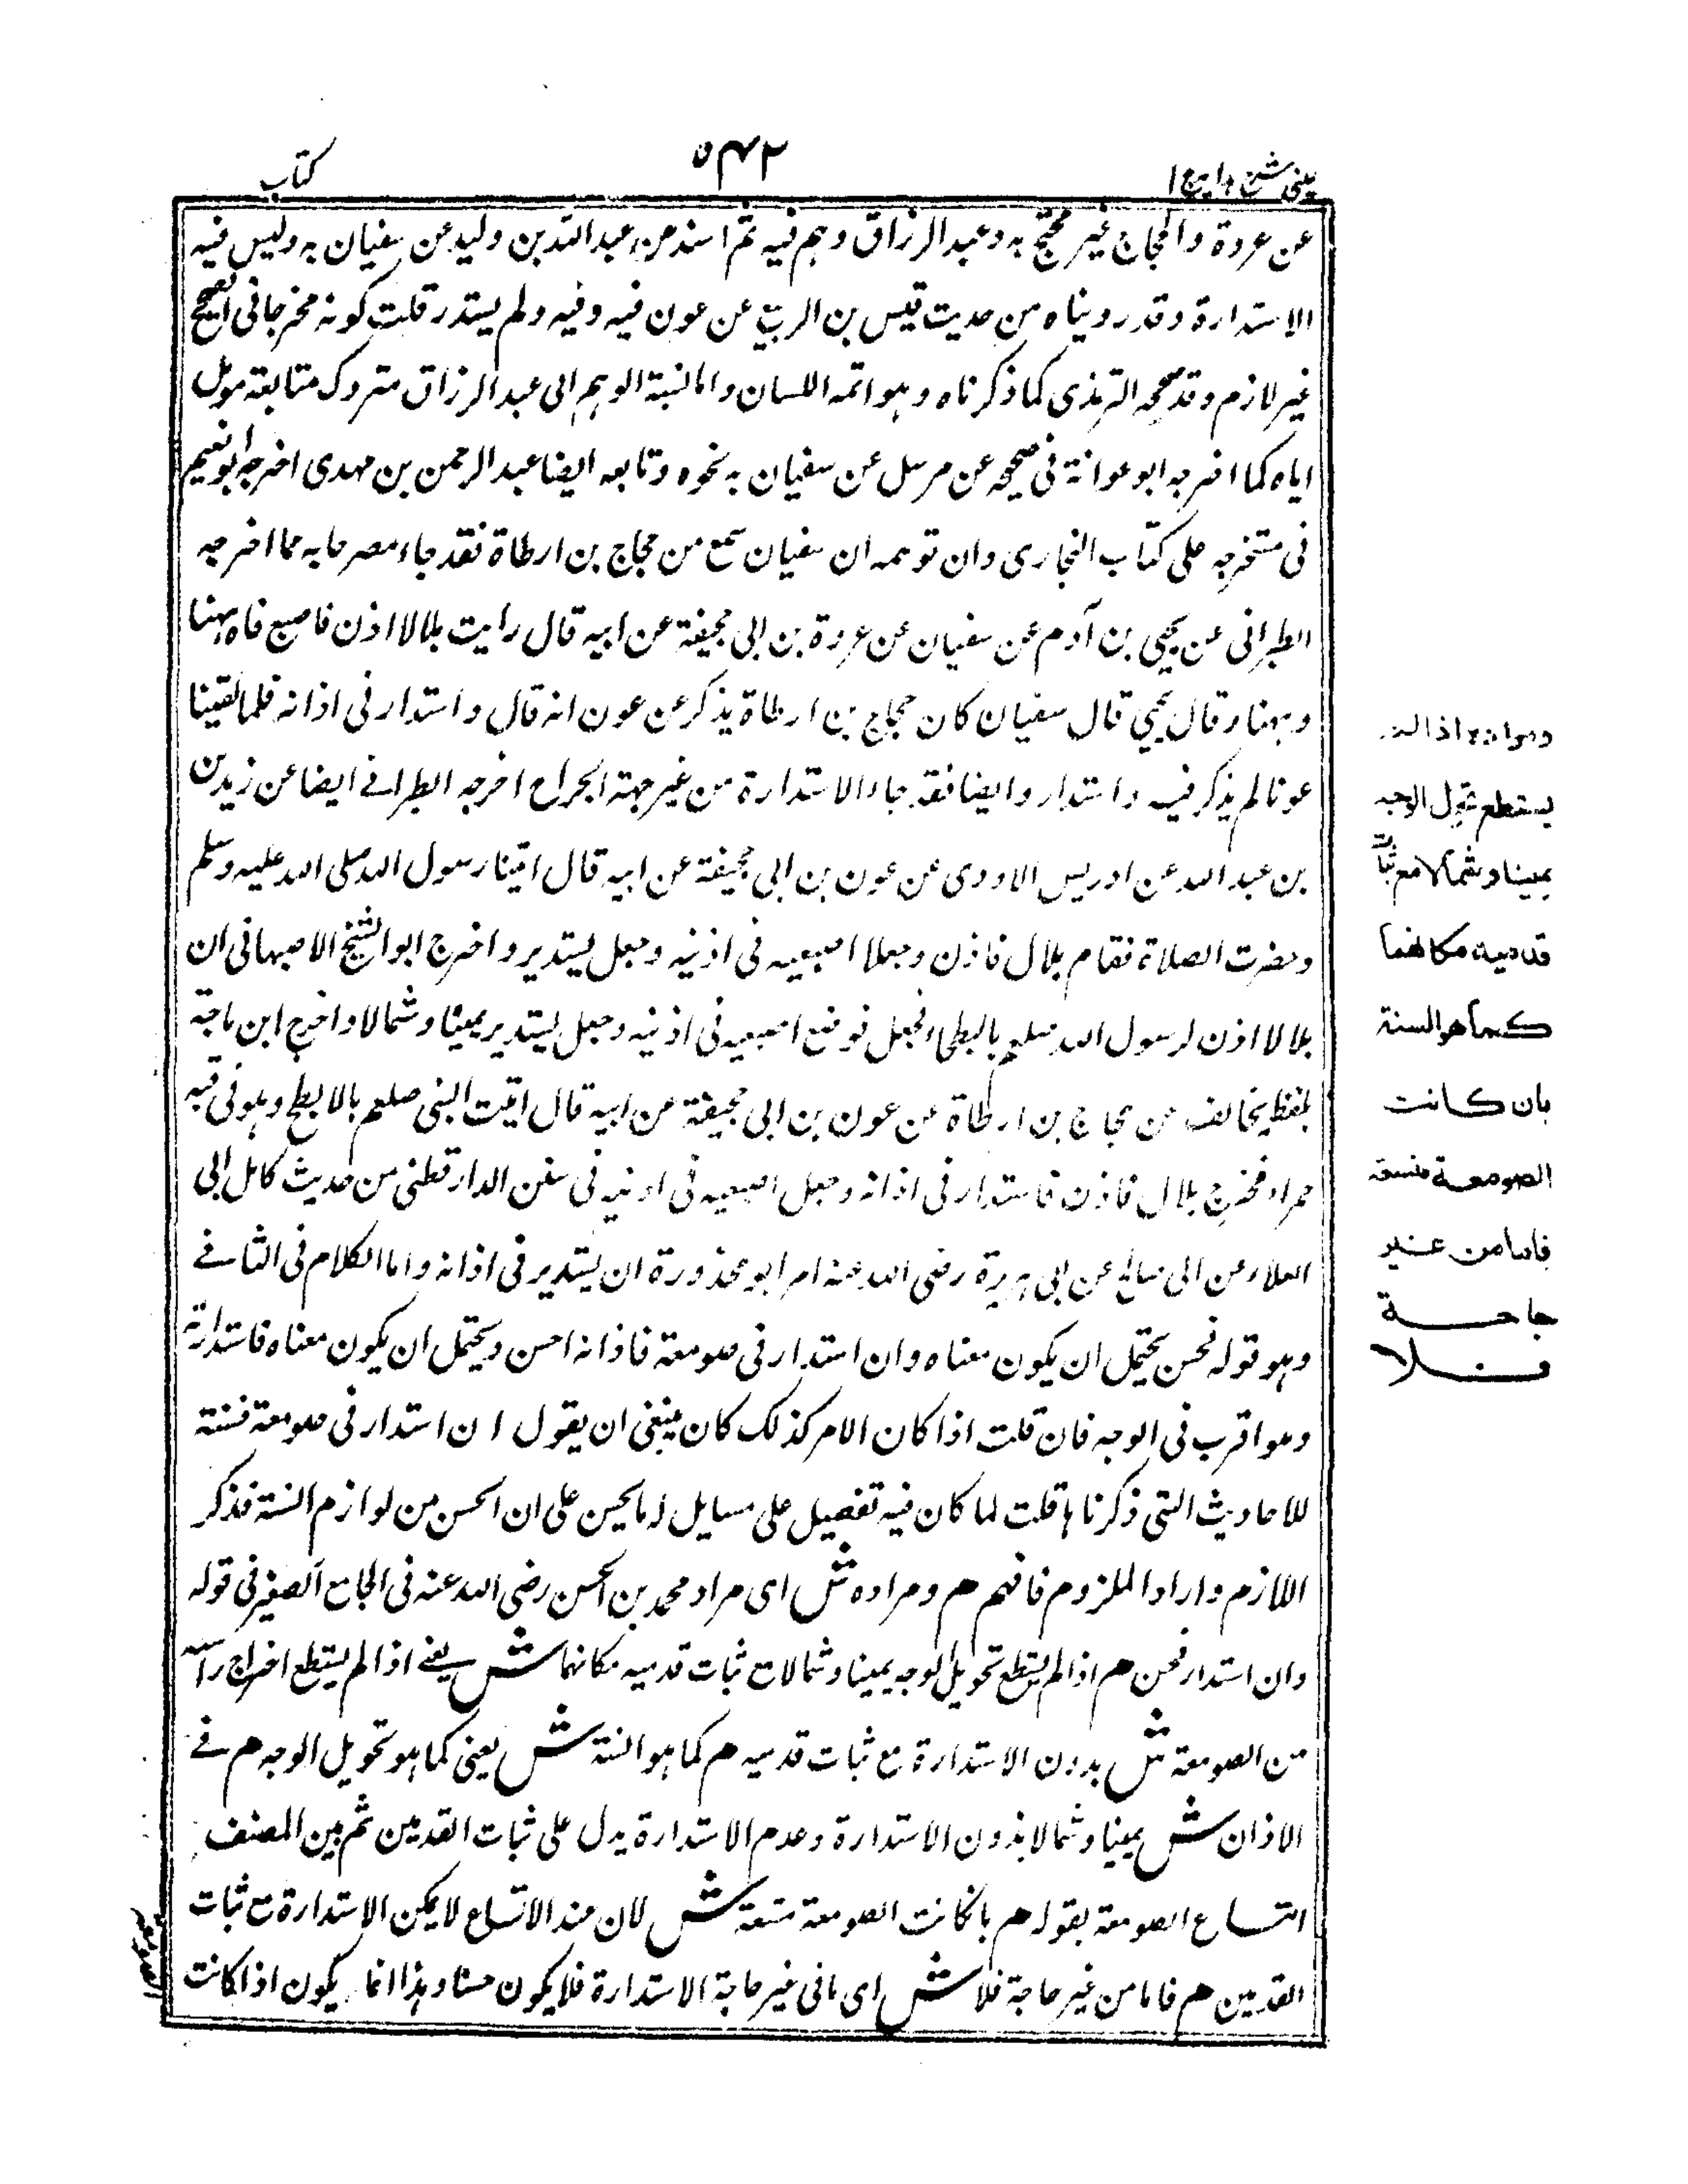 عینی شرح ہدایہ ج ا
۵۴۲
کتاب
عن عروة والحجاج غیر محتج به وعبد الرزاق وہم فیه ثم اسند عن عبد الله بن ولید عن سفیان به ولیس فیه
الاستدارة وقد رویناه من حدیث قیس بن الربیع عن عون فیه وفیه ولم یستدر قلت کونه مخرجا فی الصحیح
غیر لازم وقد صححه الترمذی کما ذکرناه وہو ائمه اللسان واما نسبة الوہم الی عبد الرزاق متروک متابعة مومل
ایاه کما اخرجه ابو عوانة فی صحیحه عن مرسل عن سفیان به نحوه وتابعه ایضا عبد الرحمن بن مہدی اخرجه ابو نعیم
فی مستخرجه علی کتاب البخاری وان توہمه ان سفیان سمع من حجاج بن ارطاة فقد جاء مصرحا به مما اخرجه
الطبرانی عن یحیی بن آدم عن سفیان عن عروة بن ابی جحیفة عن ابیه قال رایت بلالا اذن فاصبع فاه ہہنا
وہہنا وقال یحیی قال سفیان کان حجاج بن ارطاة یذکر عن عون انه قال واستدار فی اذانه فلما لقینا
عونا لم یذکر فیه واستدار وایضا فقد جاء الاستدارة من غیر جہة الجراح اخرجه الطبرانے ایضا عن زیدبن
بن عبد الله عن ادریس الاودی عن عون بن ابی جحیفة عن ابیه قال اتینا رسول الله صلی الله علیه وسلم
وحضرت الصلاة فقام بلال فاذن وجعل اصبعیه فی اذنیه وجعل یستدیر واخرج ابو الشیخ الاصبہانی ان
بلالا اذن لرسول الله صلعم بالبطحاء فجعل فوضع اصبعیه فی اذنیه وجعل یستدیر یمینا وشمالا واخرج ابن ماجة
بلفظ یخالف عن حجاج بن ارطاة عن عون بن ابی جحیفة عن ابیه قال اتیت النبی صلعم بالابطح وہو فی قبة
حمراء فخرج بلال فاذن فاستدار فی اذانه وجعل اصبعیه فی اذنیه فی سنن الدارقطنی من حدیث کامل ابی
العلاء عن ابی صالح عن ابی ہریرة رضی الله عنه امر ابو محذورة ان یستدیر فی اذانه واما الکلام فی الثانے
وہو قوله فحسن یحتمل ان یکون معناه وان استدار فی صومعة فاذانه احسن ویحتمل ان یکون معناه فاستدارته
وہو اقرب فی الوجه فان قلت اذا کان الامر کذلک کان ینبغی ان یقول ان استدار فی صومعة فسنة
للاحادیث التی ذکرناہا قلت لما کان فیه تفصیل علی مسایل اما یحسن علی ان الحسن من لوازم السنة فذکر
اللازم واراد الملزوم فافہم هم ومراده ش ای مراد محمد بن الحسن رضی الله عنه فی الجامع الصغیر فی قوله
وان استدار فحسن هم اذا لم یستطع تحویل الوجه یمینا وشمالا مع ثبات قدمیه مکانہما ش یعنے اذا لم یستطع اخراج راسه
من الصومعة ش بدون الاستدارة مع ثبات قدمیه هم کما ہو السنة ش یعنی کما ہو تحویل الوجه هم فے
الاذان ش یمینا وشمالا بدون الاستدارة وعدم الاستدارة یدل علی ثبات القدمین ثم بین المصنف
اتساع الصومعة بقوله هم بان کانت الصومعة متسعة ش لان عند الاتساع لا یمکن الاستدارة مع ثبات
القدمین هم فاما من غیر حاجة فلا ش ای مافی غیر حاجة الاستدارة فلا یکون حسنا وہذا انما یکون اذا کانت
ومراده اذا لم
یستطع تحول الوجه
یمینا وشمالا مع ثبات
قدمیه مکانهما
کما هو السنة
بان کانت
الصومعة متسعة
فاما من غیر
حاجة
فلا